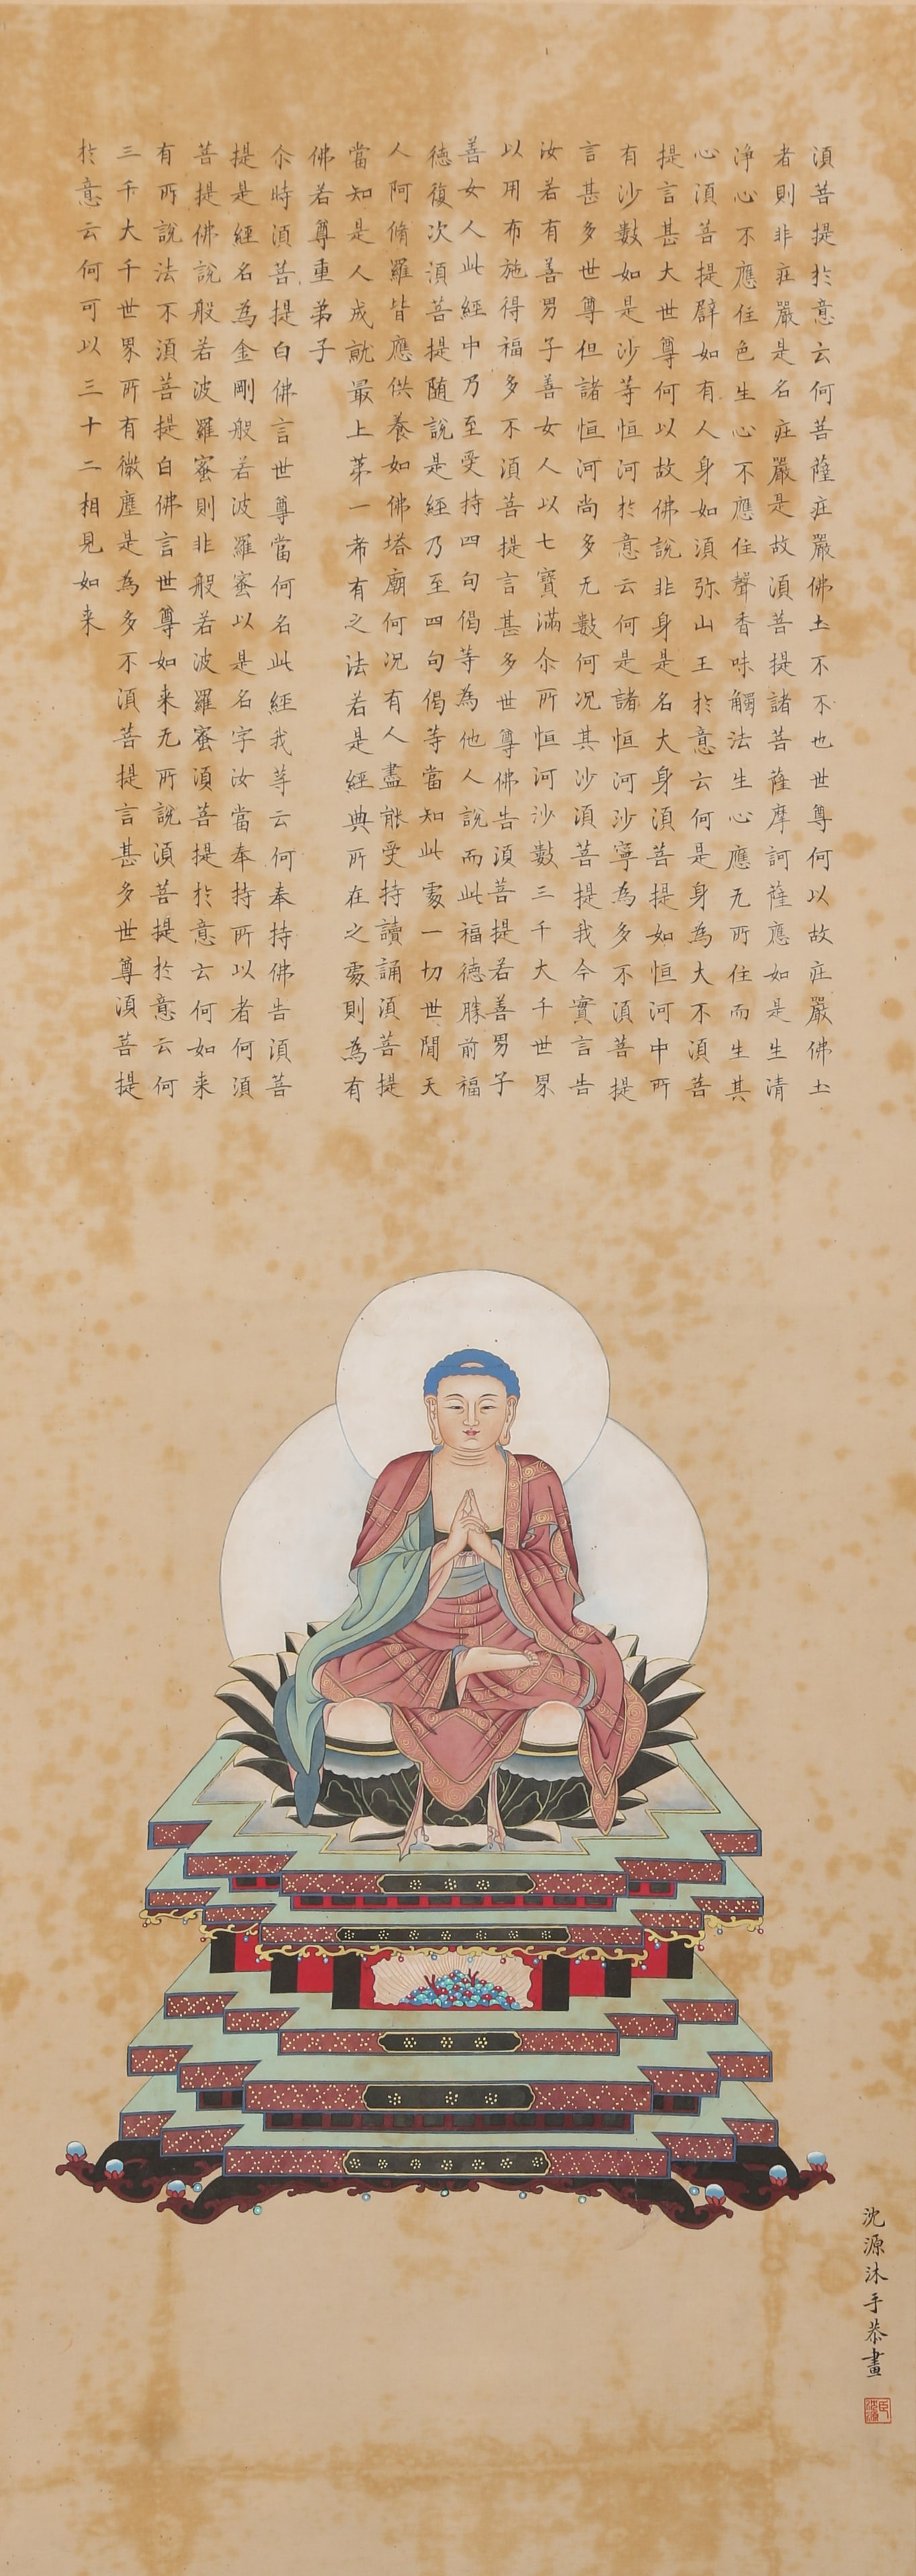 湏菩提於意云何菩薩莊嚴佛土不不也世尊何以故莊嚴佛土
者則非莊嚴是名莊嚴是故湏菩提諸菩薩摩訶薩應如是生清
淨心不應住色生心不應住聲香味觸法生心應无所住而生其
心湏菩提辟如有人身如湏弥山王於意云何是身為大不湏菩
提言甚大世尊何以故佛說非身是名大身湏菩提如恒河中所
有沙數如是沙等恒河於意云何是諸恒河沙寧為多不湏菩提
言甚多世尊但諸恒河尚多无數何况其沙湏菩提我今實言告
汝若有善男子善女人以七寶滿尒所恒河沙數三千大千世界
以用布施得福多不湏菩提言甚多世尊佛告湏菩提若善男子
善女人此經中乃至受持四句偈等為他人說而此福德勝前福
德復次湏菩提随說是經乃至四句偈等當知此䖏一切世間天
人阿脩羅皆應供養如佛塔廟何况有人盡能受持讀誦湏菩提
當知是人成就最上苐一希有之法若是經典所在之䖏則為有
佛若尊重苐子
尒時湏菩提白佛言世尊當何名此經我等云何奉持佛告湏菩
提是經名為金剛般若波羅蜜以是名字汝當奉持所以者何湏
菩提佛說般若波羅蜜則非般若波羅蜜湏菩提於意云何如来
有所說法不湏菩提白佛言世尊如来无所說湏菩提於意云何
三千大千世界所有微塵是為多不湏菩提言甚多世尊湏菩提
於意云何可以三十二相見如来
沈源沐手恭畫
臣沈源